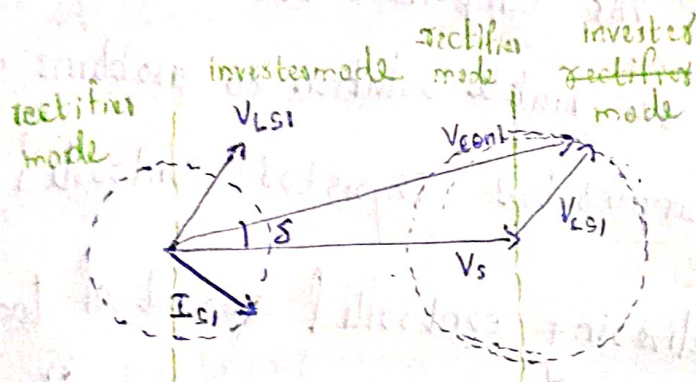 rectifier
mode
invester
rectifier
mode
invertesmode
rectifier
mode
V_LS1
V_cont
δ
V_s
V_LS1
I_S1